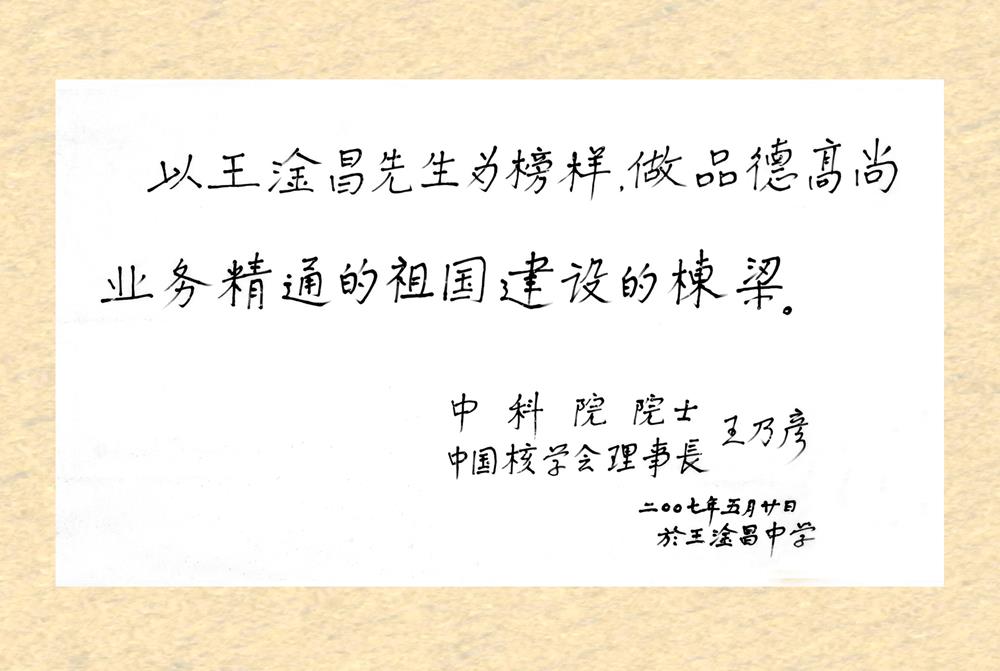 以王淦昌先生为榜样,做品德高尚
业务精通的祖国建设的栋梁。
中科院院士
中国核学会理事長 王乃彦
二〇〇七年五月廿日
於王淦昌中学